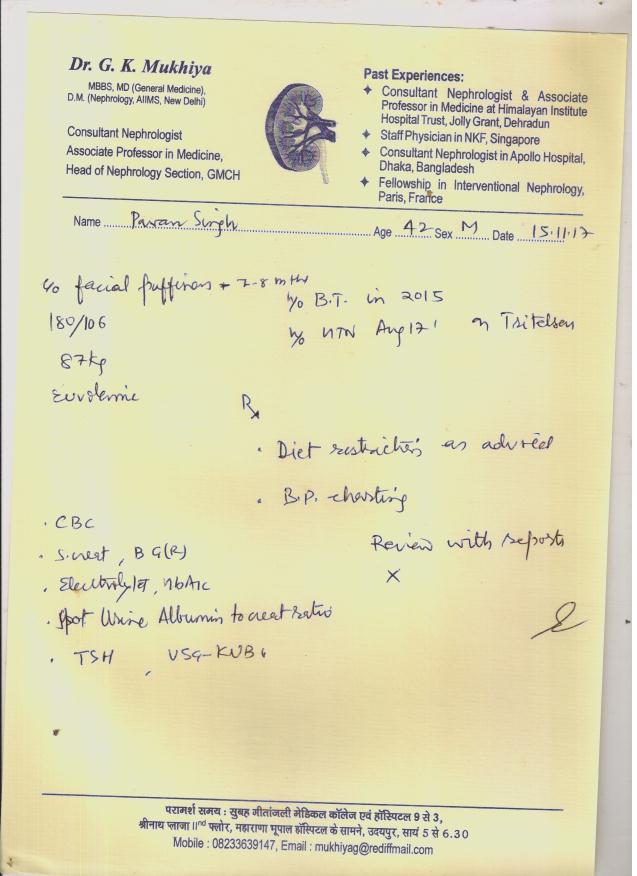 Dr. G. K. Mukhiya
MBBS, MD (General Medicine),
D.M. (Nephrology, AIIMS, New Delhi)
Consultant Nephrologist
Associate Professor in Medicine,
Head of Nephrology Section, GMCH
Past Experiences:
✦ Consultant Nephrologist & Associate
Professor in Medicine at Himalayan Institute
Hospital Trust, Jolly Grant, Dehradun
✦ Staff Physician in NKF, Singapore
✦ Consultant Nephrologist in Apollo Hospital,
Dhaka, Bangladesh
✦ Fellowship in Interventional Nephrology,
Paris, France
Name Pavan Singh Age 42 Sex M Date 15.11.17
c/o facial puffiness + 7-8 mths
180/106
87kg
Euvolemic
h/o B.T. in 2015
h/o HTN Aug 17' on
Rx
. Diet restrictions as advised
. B.P. charting
. CBC
. S.creat, BG(R)
. Electrolyte, HbA1c
. Spot Urine Albumin to creat ratio
. TSH, USG-KUB
Review with reports
X
परामर्श समय : सुबह गीतांजली मेडिकल कॉलेज एवं हॉस्पिटल 9 से 3,
श्रीनाथ प्लाजा IInd फ्लोर, महाराणा भूपाल हॉस्पिटल के सामने, उदयपुर, सायं 5 से 6.30
Mobile : 08233639147, Email : mukhiyag@rediffmail.com